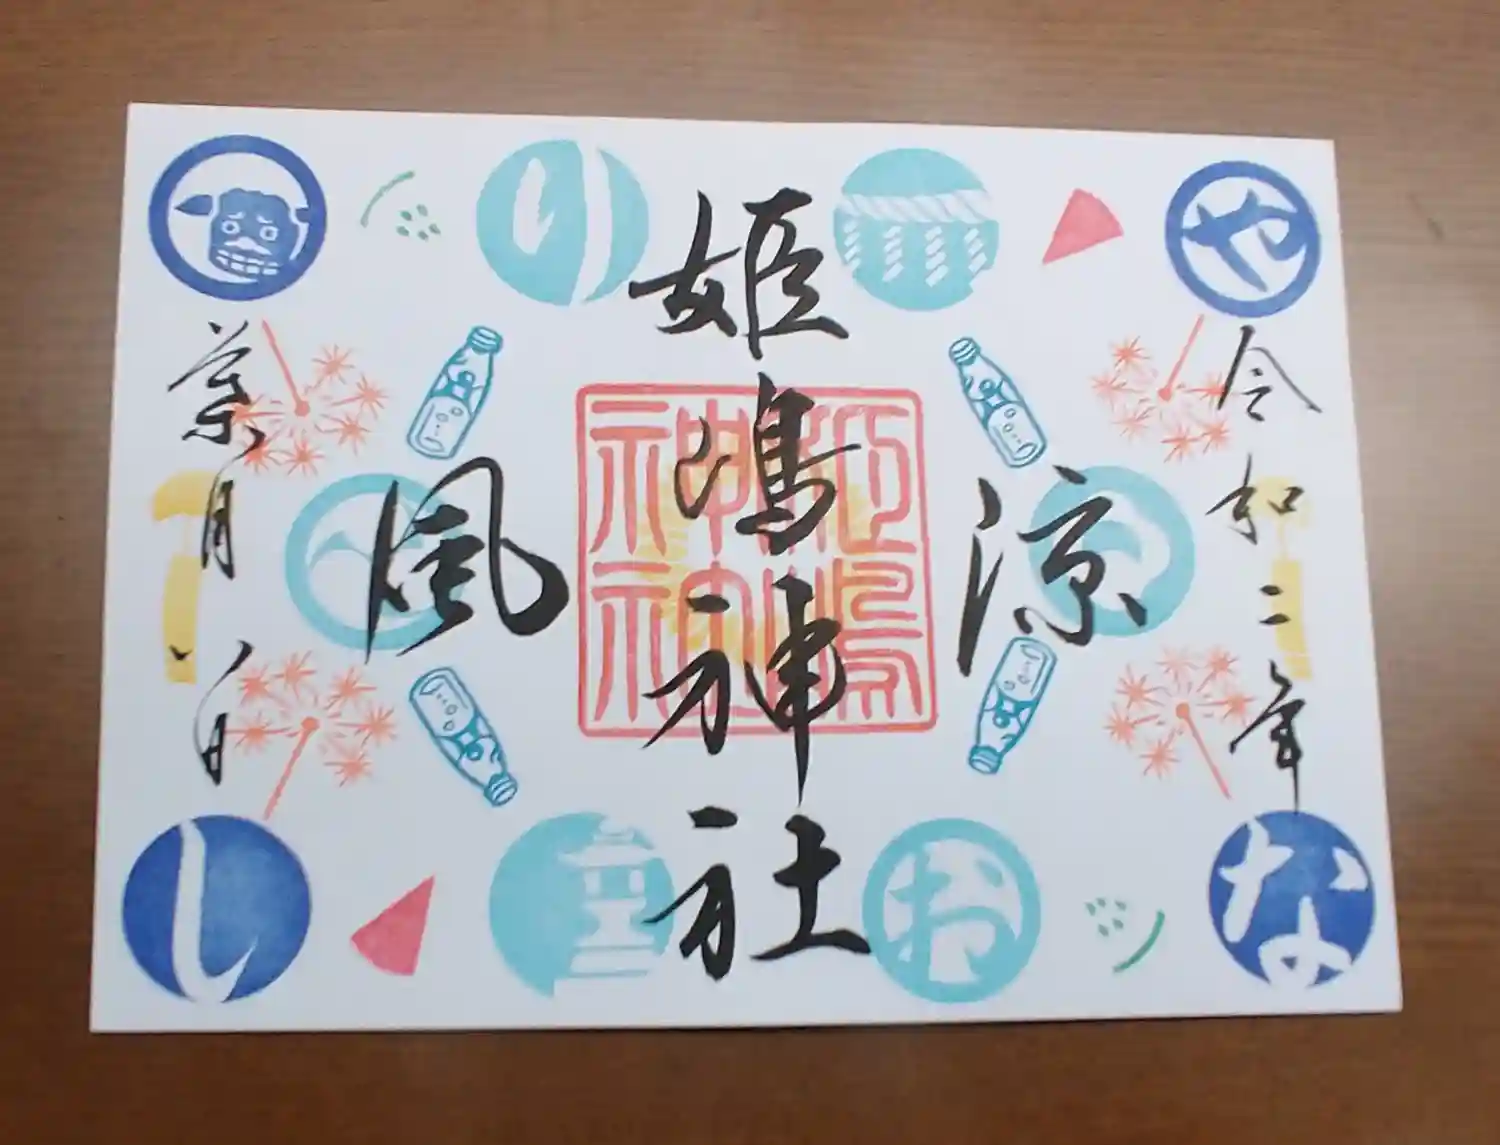 や
な
令和二年
涼
お
姫嶋神社
姫嶋神社神社
の
風
葉月 日
し